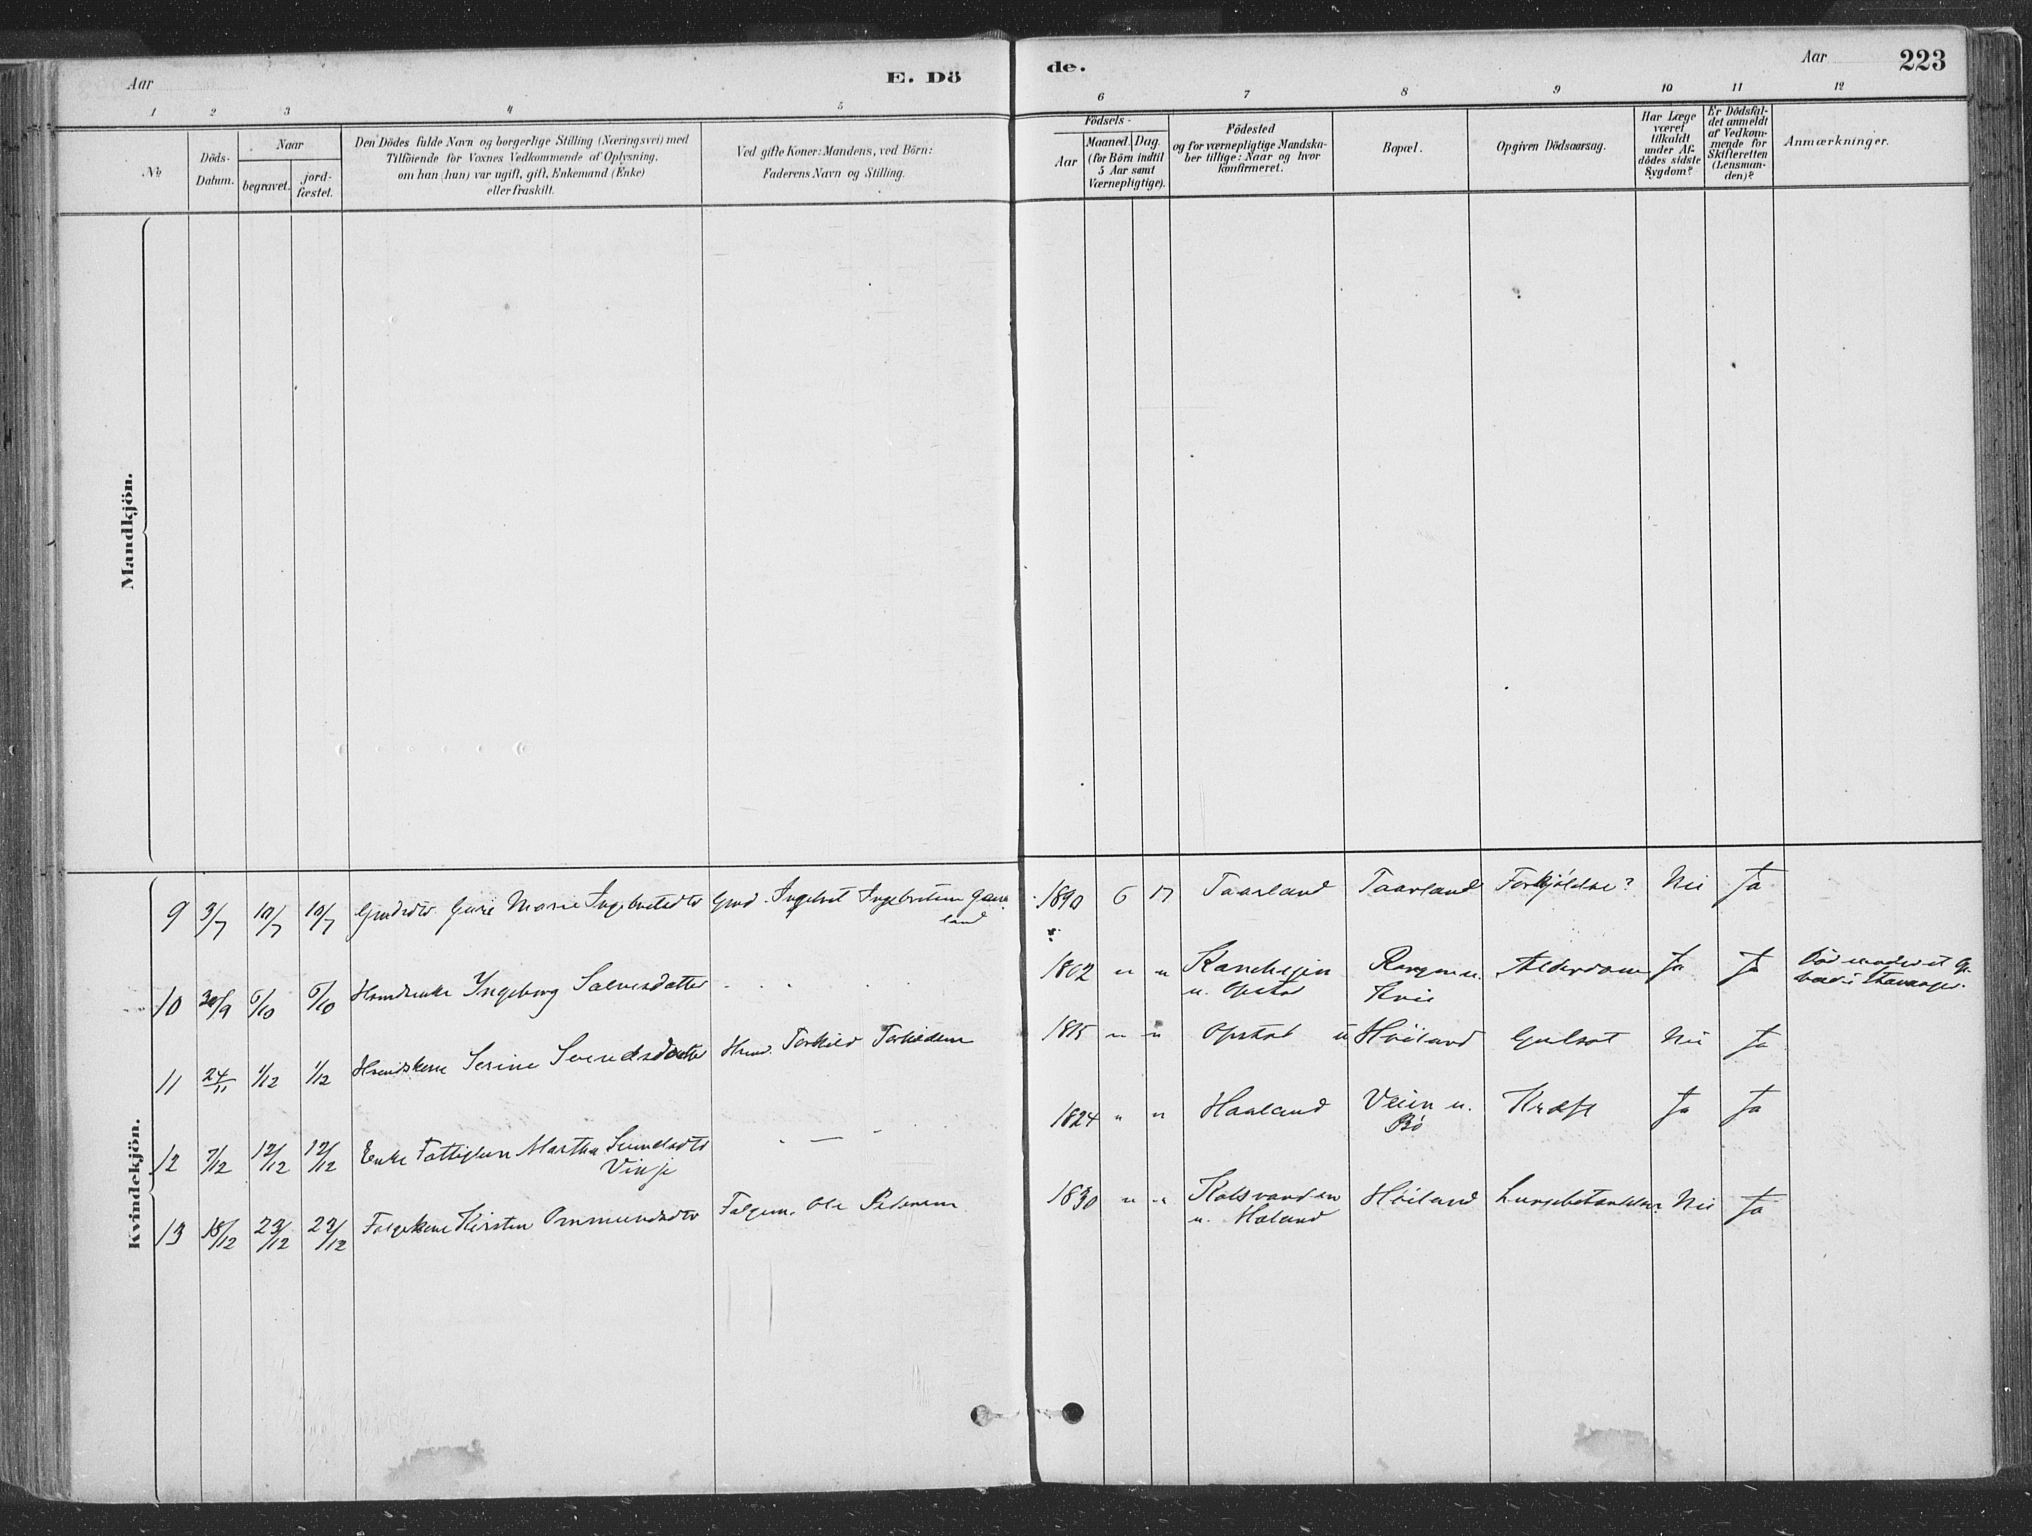 Aar
E. Dö
de.
Aar
223
1 2 3 4 5 6 7 8 9 10 11 12
No
Döds-Datum.
Naar
begravet.
jord-fæstet.
Den Dödes fulde Navn og borgerlige Stilling (Næringsvei) med
Tilföiende for Voxnes Vedkommende af Oplysning,
om han (hun) var ugift, gift, Enkemand (Enke)
eller fraskilt.
Ved gifte Koner: Mandens, ved Börn:
Faderens Navn og Stilling.
Födsels-
Aar
Maaned. Dag.
(for Börn indtil
5 Aar samt
Værnepligtige).
Födested
og for værnepligtige Mandska-
ber tillige: Naar og hvor
konfirmeret.
Bopæl.
Opgiven Dödsaarsag.
Har Læge
været
tilkaldt
under Af-
dödes sidste
Sygdom?
Er Dödsfal-
det anmeldt
af Vedkom-
mende for
Skifteretten
(Lensman-
den)?
Anmærkninger.
Mandkjön.
Kvindekjön.
9 3/7 10/7 10/7 Marie Ingebretsdtr Ingebret Ingebretsen 1890 6 17 Taarland Taarland Forkjölelse? Nei Ja
land
10 30/9 6/10 6/10 Ingeborg Salvesdatter 1802 " " u. Opstad Kvie Alderdom Ja Ja
Stavanger.
11 24/11 1/12 1/12 Serine Svendsdatter Torkild Torkildsen 1815 " " Opstad Höiland Gulsot Nei Ja
12 7/12 12/12 12/12 Enke Martha 1824 " " Haaland Veien u. Kræft Ja Ja
Vinje Bö
13 18/12 23/12 23/12 Kirsten Ommundsdtr Ole Pedersen 1830 " " Höiland Nei Ja
u. Höland